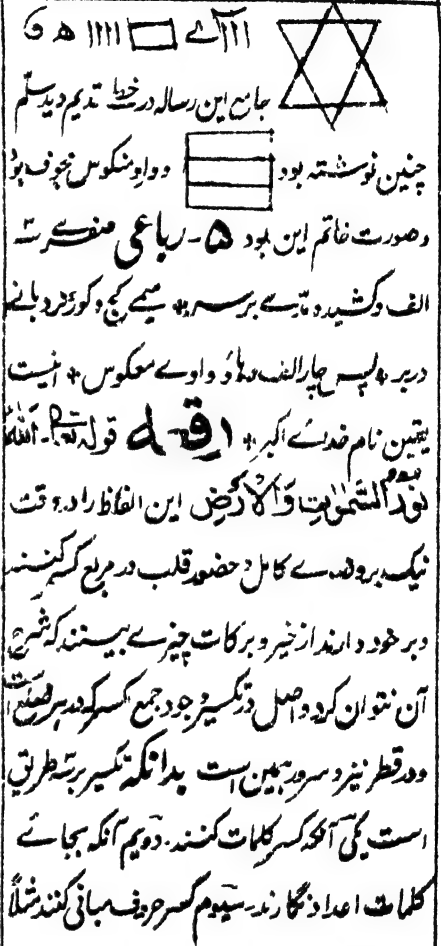 جامع این رساله در خط قدیم دیدستم
چنین نوشته بود و واو منکوس مجوف بود
و صورت خاتم این بود ۵ - رباعی
الف کشیده بر سر * میمے کج و کوز نردبانے
در بر * پس چار الف و هاؤ و واوے معکوس * اینست
یقین نام خدائے اکبر * قوله تع - الله
نور السمٰوٰت والأرض این الفاظ را در وقت
نیک بروشے کامل و حضور قلب در مربع کسر کنند
و بر خود دارند از خیر و برکات چیزے بینند که شرح
آن نتوان کرد و اصل در تکسیر وجود جمع کسر که در هر ضلع است
و در قطر نیز دستور همین است بدانکه تکسیر بر سه طریق
است یکی آنکه کسر کلمات کنند - دویم آنکه بجائے
کلمات اعداد نگارند - سیوم کسر حروف مبانی کنند مثلاً